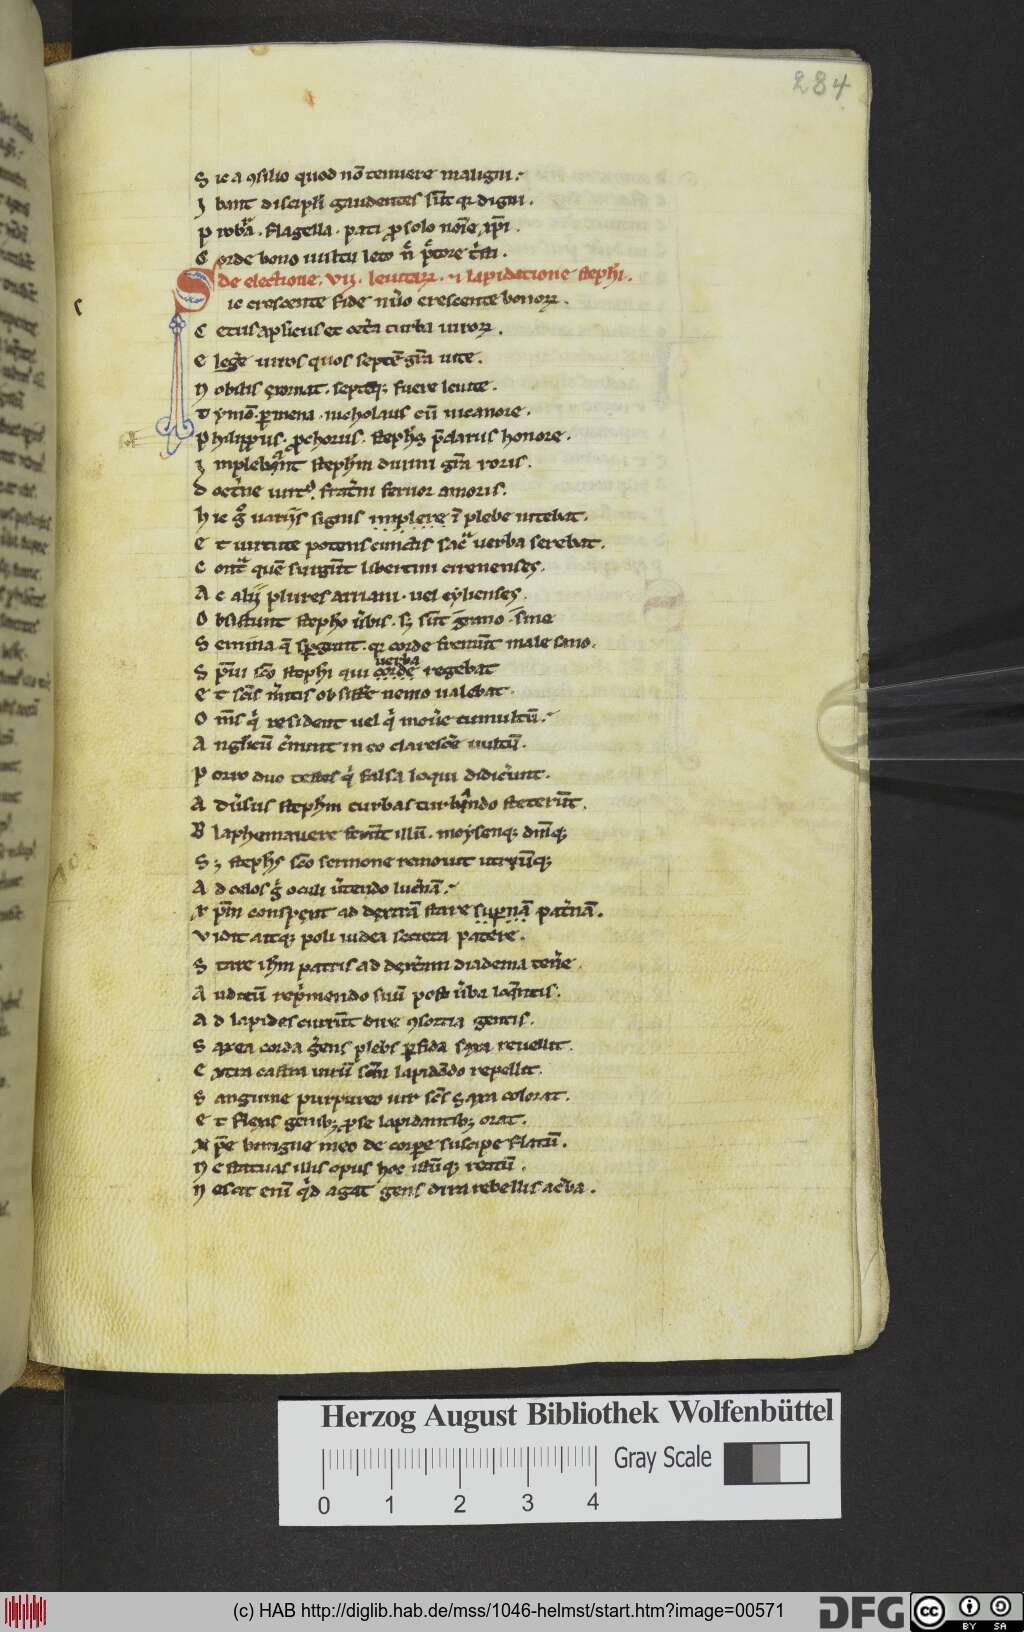 284
S ic a ꝯsilio quod nō tenuere maligni.
I bant discipli gaudentes sūt qꝛ digni.
p robᵃ. flagella. pati ꝓ solo noīe xp̄i.
C orde bono uultu leto
de electione. vij. leuitaꝝ. ⁊ lapidatione stephi.
S ic crescente fide nūo crescente bonoꝝ.
C etus apl̓icus et turba uiroꝝ.
E lege uiros quos septē gr̄a uite.
N obilis exornat. fuere leuite.
T ymō. ꝑmena. nicholaus cū nicanore.
P hilippus. ꝓchorus. stephs p̄clarus honore.
I mplebant stephm diuini gr̄a roris.
d feruor amoris.
h ic gͦ uarijs signis implere ī plebe nitebat.
E t uirtute potens cunctis sacᵃ uerba serebat.
C ontᵃ quē surgūt libertini cirenenses.
A c alij plures uel cylienses.
O bsistunt stepho ūbis. sꝫ sūt sine
S emina q̄ spargunt. qꝛ corde fremūt male sano.
S pūi sc̄o stephi qui corde uerba regebat
E t sc̄is nemo ualebat.
O m̄s qͥ resident uel qͥ tumultū.
A nglicū c̓nunt in eo claresc̓e uultū.
P orro duo testes qͥ falsa loqui didic̓unt.
A du̓sus stephm turbas turbando steterūt.
B laphemauere illū. moysenqꝫ dm̄qꝫ
S ꝫ stephs sc̄o sermone remouit utrūqꝫ
A d celos gͦ oculi
⁊ p̄m ad dextrā stare supnā pat̓nā.
V idit atqꝫ poli iudea secreta patere.
S tare ihm patris ad dext̓am diadema ten̓e.
A uditū rep̓mendo suū post ūba loq̄ntis.
A d lapides currūt dire ꝯsortia gentis.
S axea corda g̓ens plebs ꝑfida saxa reuellit.
E xtra castra uirū sc̄m lapidādo repellit.
S anguine purpureo uir sc̄s saxa colorat.
E t flexis genibꝫ ꝓ se lapidantibꝫ orat.
X p̄e benigne meo de corpe suscipe flatū.
N e statuas illis opus hoc reatū.
N escit enī qͥd agat gens dira rebellis ac̓ba.
Herzog August Bibliothek Wolfenbüttel
Gray Scale
0 1 2 3 4
(c) HAB http://diglib.hab.de/mss/1046-helmst/start.htm?image=00571
DFG
cc BY SA